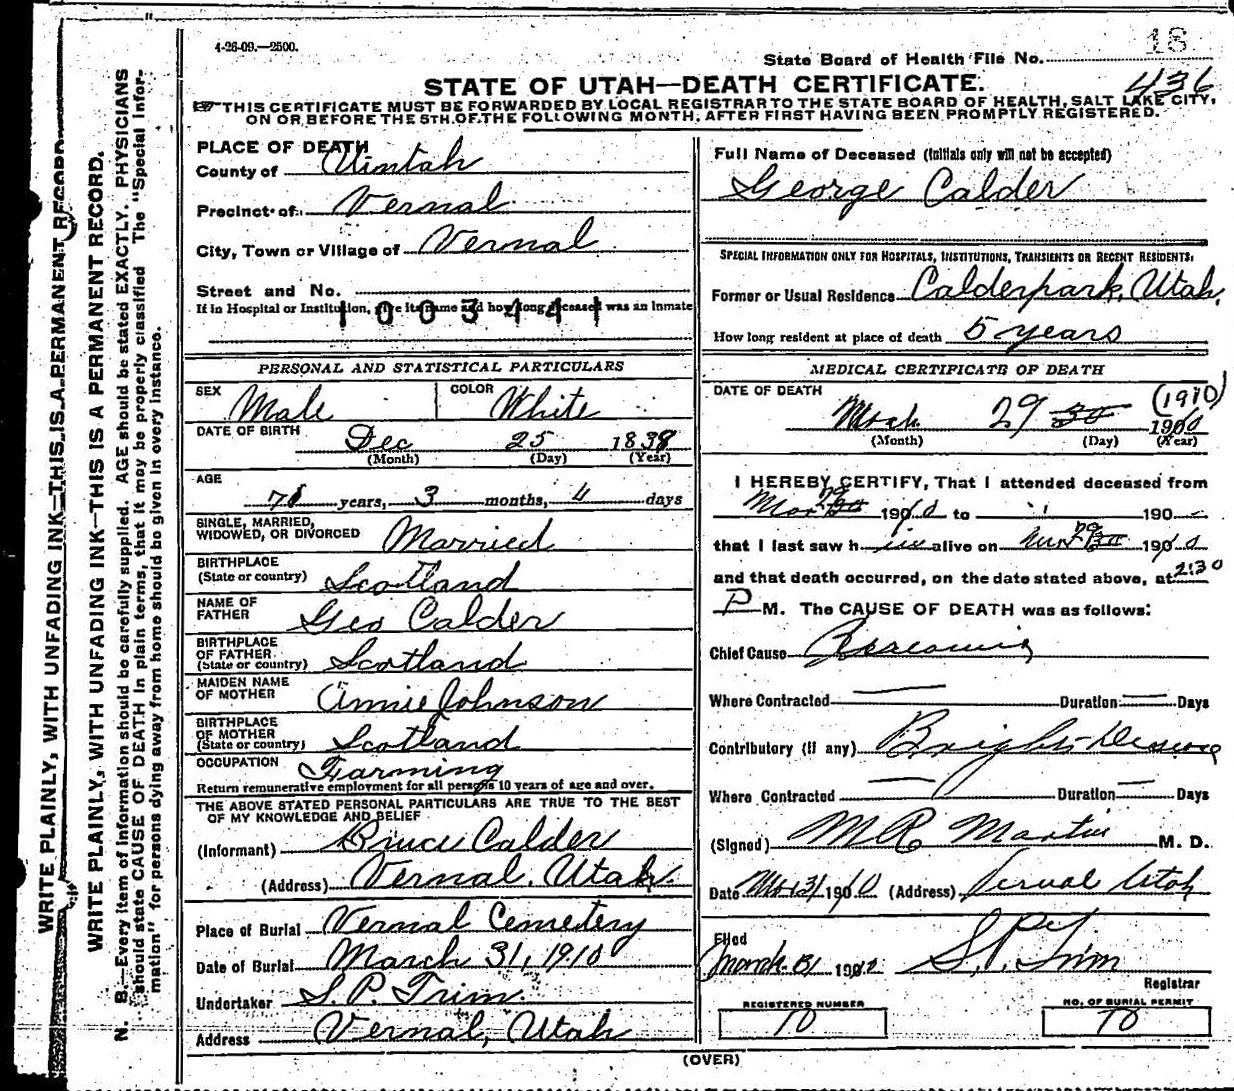 18
4-26-09.—2500.
State Board of Health File No.
436
STATE OF UTAH—DEATH CERTIFICATE.
THIS CERTIFICATE MUST BE FORWARDED BY LOCAL REGISTRAR TO THE STATE BOARD OF HEALTH, SALT LAKE CITY,
ON OR BEFORE THE 5TH OF THE FOLLOWING MONTH, AFTER FIRST HAVING BEEN PROMPTLY REGISTERED.
WRITE PLAINLY, WITH UNFADING INK—THIS IS A PERMANENT RECORD.
WRITE PLAINLY, WITH UNFADING INK—THIS IS A PERMANENT RECORD.
N. B.—Every item of information should be carefully supplied. AGE should be stated EXACTLY. PHYSICIANS
should state CAUSE OF DEATH in plain terms, that it may be properly classified. The "Special Infor-
mation" for persons dying away from home should be given in every instance.
PLACE OF DEATH
County of Uintah
Precinct of Vernal
City, Town or Village of Vernal
Street and No.
If in Hospital or Institution, give its name and how long deceased was an inmate
1003441
PERSONAL AND STATISTICAL PARTICULARS
SEX Male COLOR White
DATE OF BIRTH Dec 25 1838
(Month) (Day) (Year)
AGE
71 years, 3 months, 4 days
SINGLE, MARRIED,
WIDOWED, OR DIVORCED Married
BIRTHPLACE
(State or country) Scotland
NAME OF
FATHER Geo Calder
BIRTHPLACE
OF FATHER
(State or country) Scotland
MAIDEN NAME
OF MOTHER Annie Johnson
BIRTHPLACE
OF MOTHER
(State or country) Scotland
OCCUPATION Farming
Return remunerative employment for all persons 10 years of age and over.
THE ABOVE STATED PERSONAL PARTICULARS ARE TRUE TO THE BEST
OF MY KNOWLEDGE AND BELIEF
(Informant) Bruce Calder
(Address) Vernal, Utah.
Place of Burial Vernal Cemetery
Date of Burial March 31, 1910
Undertaker S. P. Trim
Address Vernal, Utah
Full Name of Deceased (Initials only will not be accepted)
George Calder
SPECIAL INFORMATION ONLY FOR HOSPITALS, INSTITUTIONS, TRANSIENTS OR RECENT RESIDENTS.
Former or Usual Residence Calderpark, Utah,
How long resident at place of death 5 years
MEDICAL CERTIFICATE OF DEATH
DATE OF DEATH (1910)
March 29 30 1910
(Month) (Day) (Year)
I HEREBY CERTIFY, That I attended deceased from
Mar 29 1910 to 190
that I last saw him alive on Mar 29 1910
and that death occurred, on the date stated above, at 2:30
P M. The CAUSE OF DEATH was as follows:
Chief Cause
Where Contracted Duration Days
Contributory (if any) Brights Disease
Where Contracted Duration Days
(Signed) M R Martin M. D.
Date Mar 31 1910 (Address) Vernal Utah
Filed
March 31 1910 S. P. Trim
Registrar
REGISTERED NUMBER
10
NO. OF BURIAL PERMIT
10
(OVER)